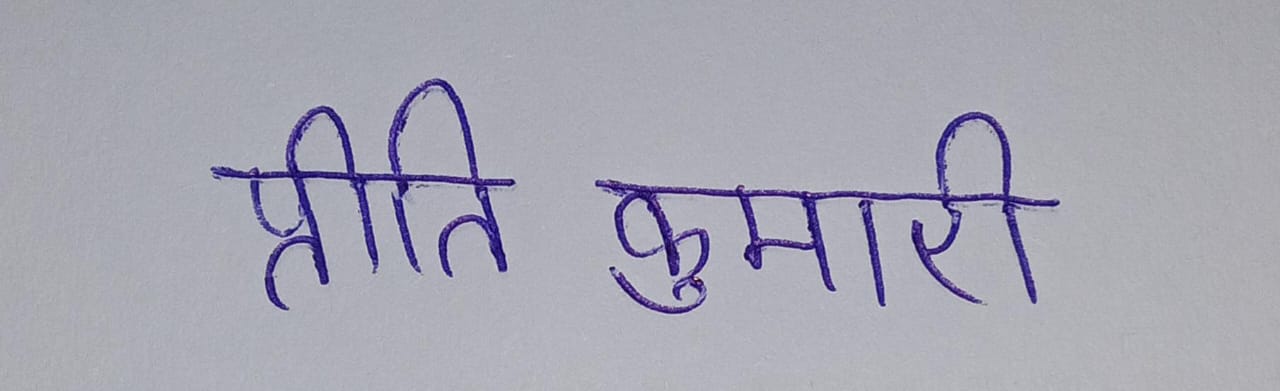 प्रीति कुमारी